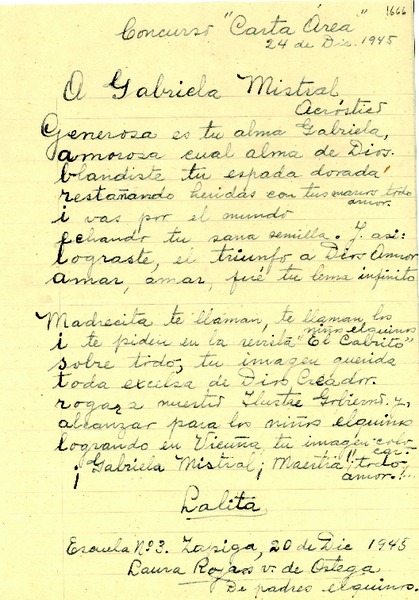 1666
Concurso "Carta Área"
24 de Dic. 1945
A Gabriela Mistral
Acróstico
Generosa es tu alma Gabriela,
amorosa cual alma de Dios.
blandiste tu espada dorada
restañando heridas con tus manos todo
amor.
i vas por el mundo
echando tu sana semilla. Y así:
lograste, el triunfo a Dios Amor
amar, amar, fué tu lema infinito
Madrecita te llaman, te llaman los
niños elquinos
i te piden en la revista "El Cabrito"
sobre todo, tu imagen querida
toda excelsa de Dios Creador.
rogará nuestro Ilustre Gobierno y,
alcanzar para los niños elquinos
logrando en Vicuña tu imagen
¡Gabriela Mistral; Maestra! todo
amor!..
Lalita
Escuela No3. Zapiga, 20 de Dic 1945
Laura Rojas v. de Ostega
De padres elquinos.